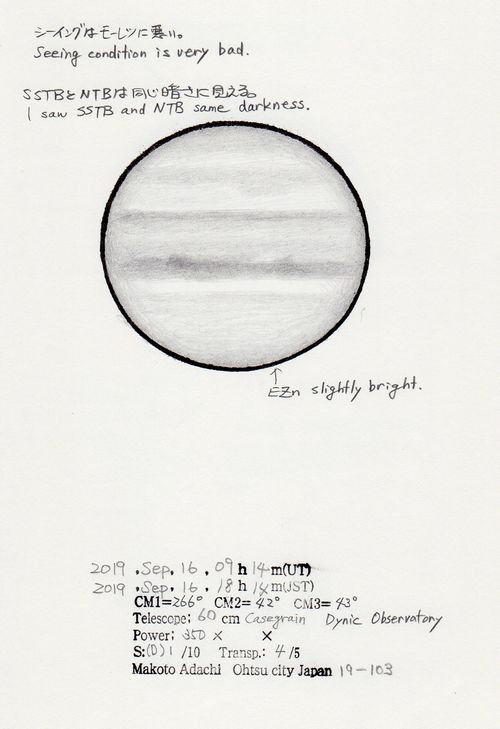 シーイングはモーレツに悪い。
Seeing condition is very bad.
SSTBとNTBは同じ暗さに見える。
I saw SSTB and NTB same darkness.
↑
EZn slightly bright.
2019 .Sep. 16 . 09 h 14 m(UT)
2019 .Sep. 16 . 18 h 14 m(JST)
CM1=266° CM2= 42° CM3= 43°
Telescope; 60 cm Casegrain Dynic Observatory
Power; 350 × ×
S:(D) 1 /10 Transp.: 4 /5
Makoto Adachi Ohtsu city Japan 19-103